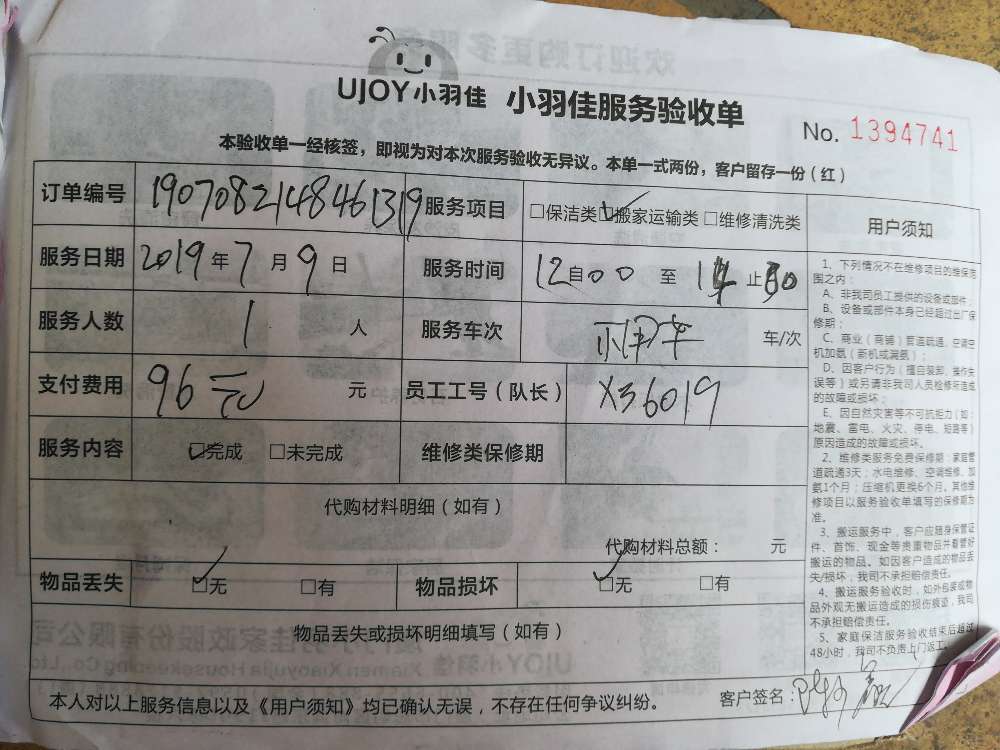 UJOY小羽佳 小羽佳服务验收单
No. 1394741
本验收单一经核签，即视为对本次服务验收无异议。本单一式两份，客户留存一份（红）
订单编号 1907082148461319 服务项目 □保洁类 ☑搬家运输类 □维修清洗类
服务日期 2019年7月9日 服务时间 12自00 至 止
服务人数 1 人 服务车次 车/次
支付费用 96元 元 员工工号（队长） X36019
服务内容 ☑完成 □未完成 维修类保修期
代购材料明细（如有）
代购材料总额： 元
物品丢失 ☑无 □有 物品损坏 ☑无 □有
物品丢失或损坏明细填写（如有）
本人对以上服务信息以及《用户须知》均已确认无误，不存在任何争议纠纷。 客户签名：
用户须知
1、下列情况不在维修项目的维保范
围之内：
A、非我司员工提供的设备或部件；
B、设备或部件本身已经超过出厂保
修期；
C、商业（商铺）管道疏通，空调空
机加氨（新机或漏氨）；
D、因客户行为（擅自装卸、操作失
误等）或另请非我司人员检修所造成
的故障或损坏；
E、因自然灾害等不可抗拒力（如：
地震、雷电、火灾、停电、短路等）
原因造成的故障或损坏。
2、维修类服务免费保修期：家庭管
道疏通3天；水电维修、空调维修、加
氨1个月；压缩机更换6个月。其他维
修项目以服务验收单填写的保修期为
准。
3、搬运服务中，客户应随身保管证
件、首饰、现金等贵重物品并看管好
搬运的物品。如因客户造成的物品丢
失/损坏，我司不承担赔偿责任。
4、搬运服务验收时，如外包装或物
品外观无搬运造成的损伤痕迹，我司
不承担赔偿责任。
5、家庭保洁服务验收结束后超过
48小时，我司不负责上门返工。